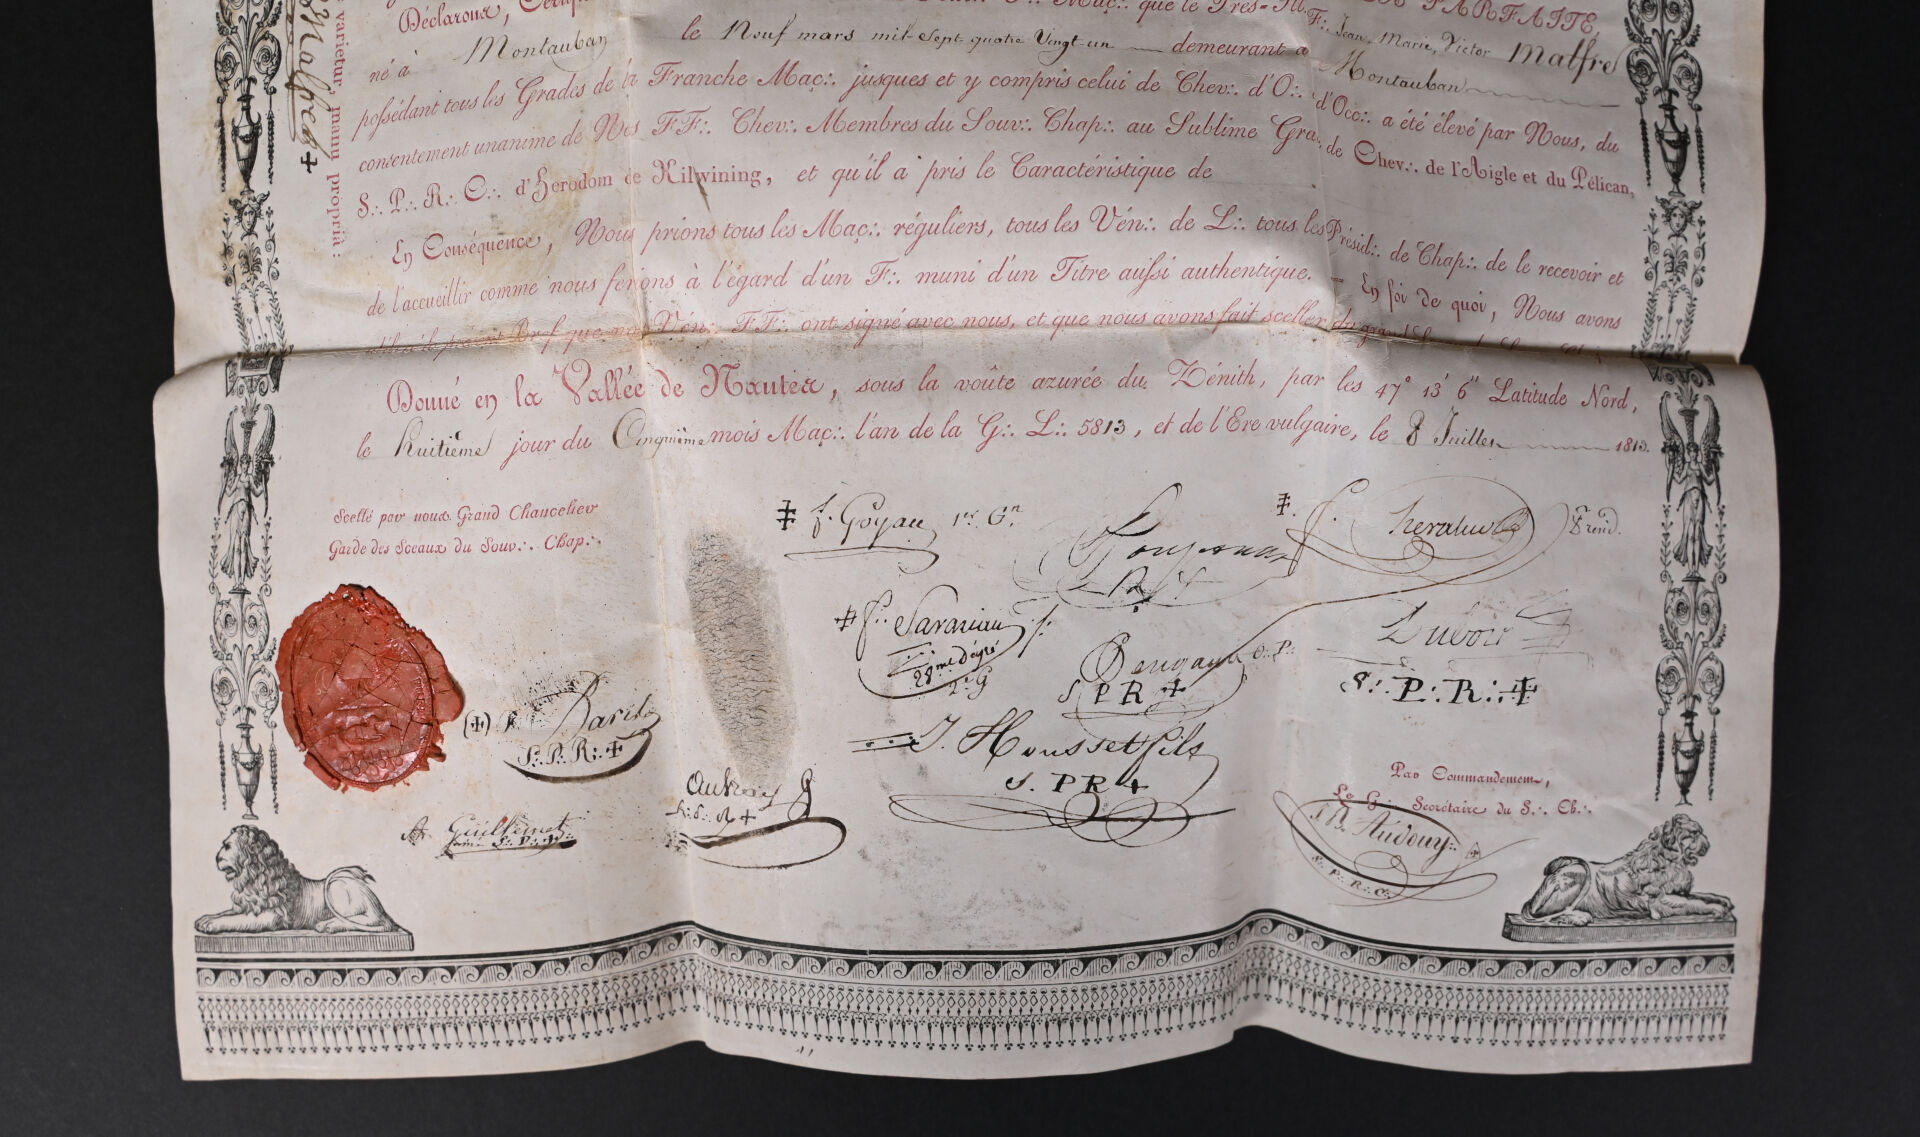 PARFAITE,
Déclarons, Certif
Maç∴ que le Très-Ill. F∴ Jean, Marie, Victor Malfre
né à Montauban le Neuf mars mil sept quatre Vingt-un demeurant a Montauban
possédant tous les Grades de la Franche Maç∴ jusques et y compris celui de Chev∴ d'O∴ d'Occ∴ a été élevé par Nous, du
consentement unanime de Nos FF∴ Chev∴ Membres du Souv∴ Chap∴ au Sublime Grade de Chev∴ de l'Aigle et du Pélican,
S∴ P∴ R∴ C∴ d'Herodom de Kilwining, et qu'il a pris le Caractéristique de
En Conséquence, Nous prions tous les Maç∴ réguliers, tous les Vén∴ de L∴ tous les Présid∴ de Chap∴ de le recevoir et
de l'accueillir comme nous ferions à l'égard d'un F∴ muni d'un Titre aussi authentique. = En foi de quoi, Nous avons
Bref que nos Vén∴ FF∴ ont signé avec nous, et que nous avons fait sceller du grand
Donné en la Vallée de Nantes, sous la voûte azurée du Zénith, par les 47° 13' 6" Latitude Nord,
le huitième jour du Cinquième mois Maç∴ l'an de la G∴ L∴ 5813, et de l'Ere vulgaire, le 8 Juillet 1813.
Malfre
varietur manu propriâ:
Scellé par nous Grand Chancelier
Garde des Sceaux du Souv∴ Chap∴
f. Goyau 1er Gn
S∴ Savariau
28me degré
2e G
Dubois
S∴ P∴ R∴ ‡
O∴ P∴
S P R ‡
Baril
S∴ P∴ R∴ ‡
J. Housset fils
S. P R ‡
Guillemet
Par Commandement,
Le G∴ Secrétaire du S∴ Ch∴
Audouy
S∴ P∴ R∴ C∴